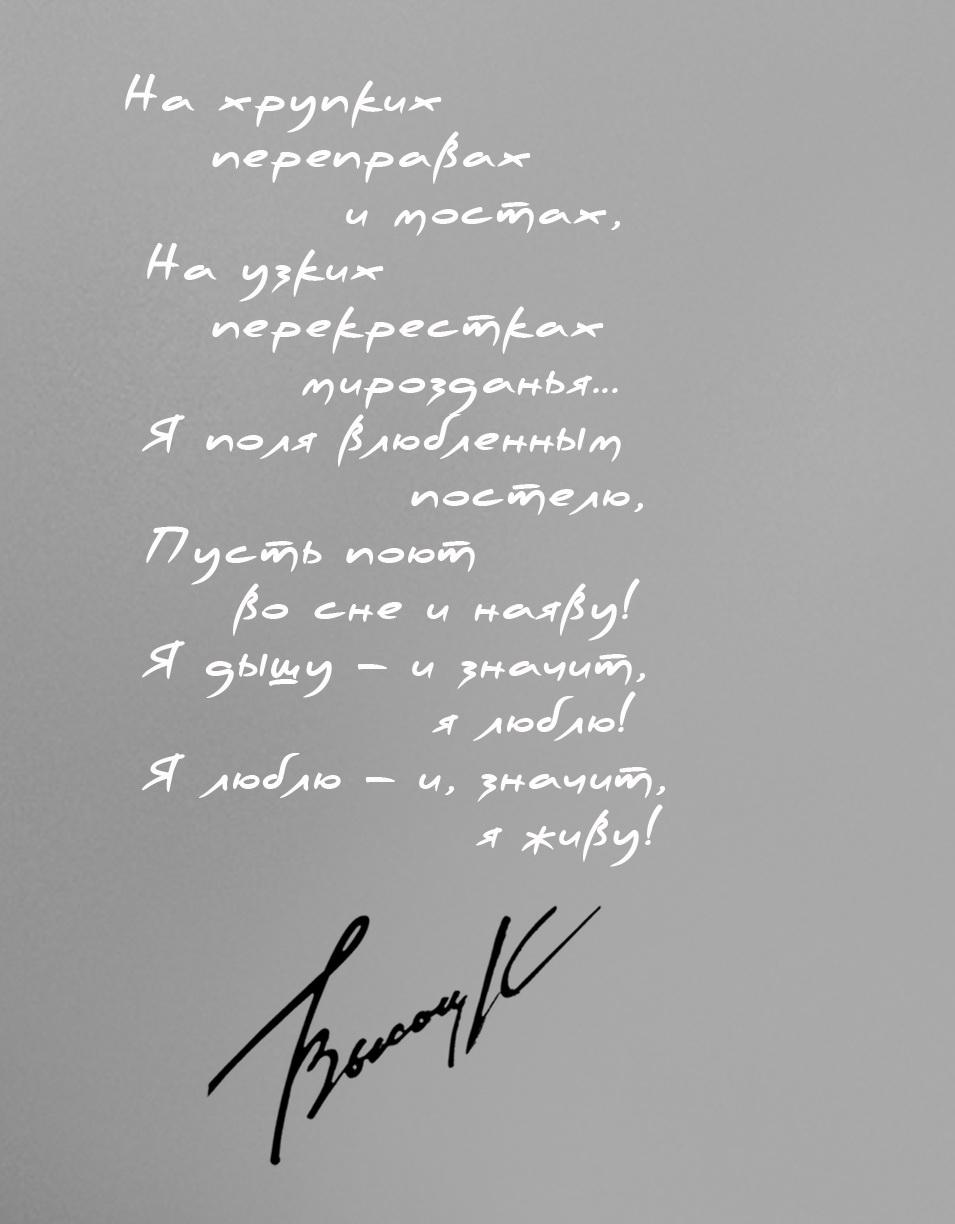 На хрупких
переправах
и мостах,
На узких
перекрестках
мирозданья...
Я поля влюбленным
постелю,
Пусть поют
во сне и наяву!
Я дышу – и значит,
я люблю!
Я люблю – и, значит,
я живу!
Высоцк